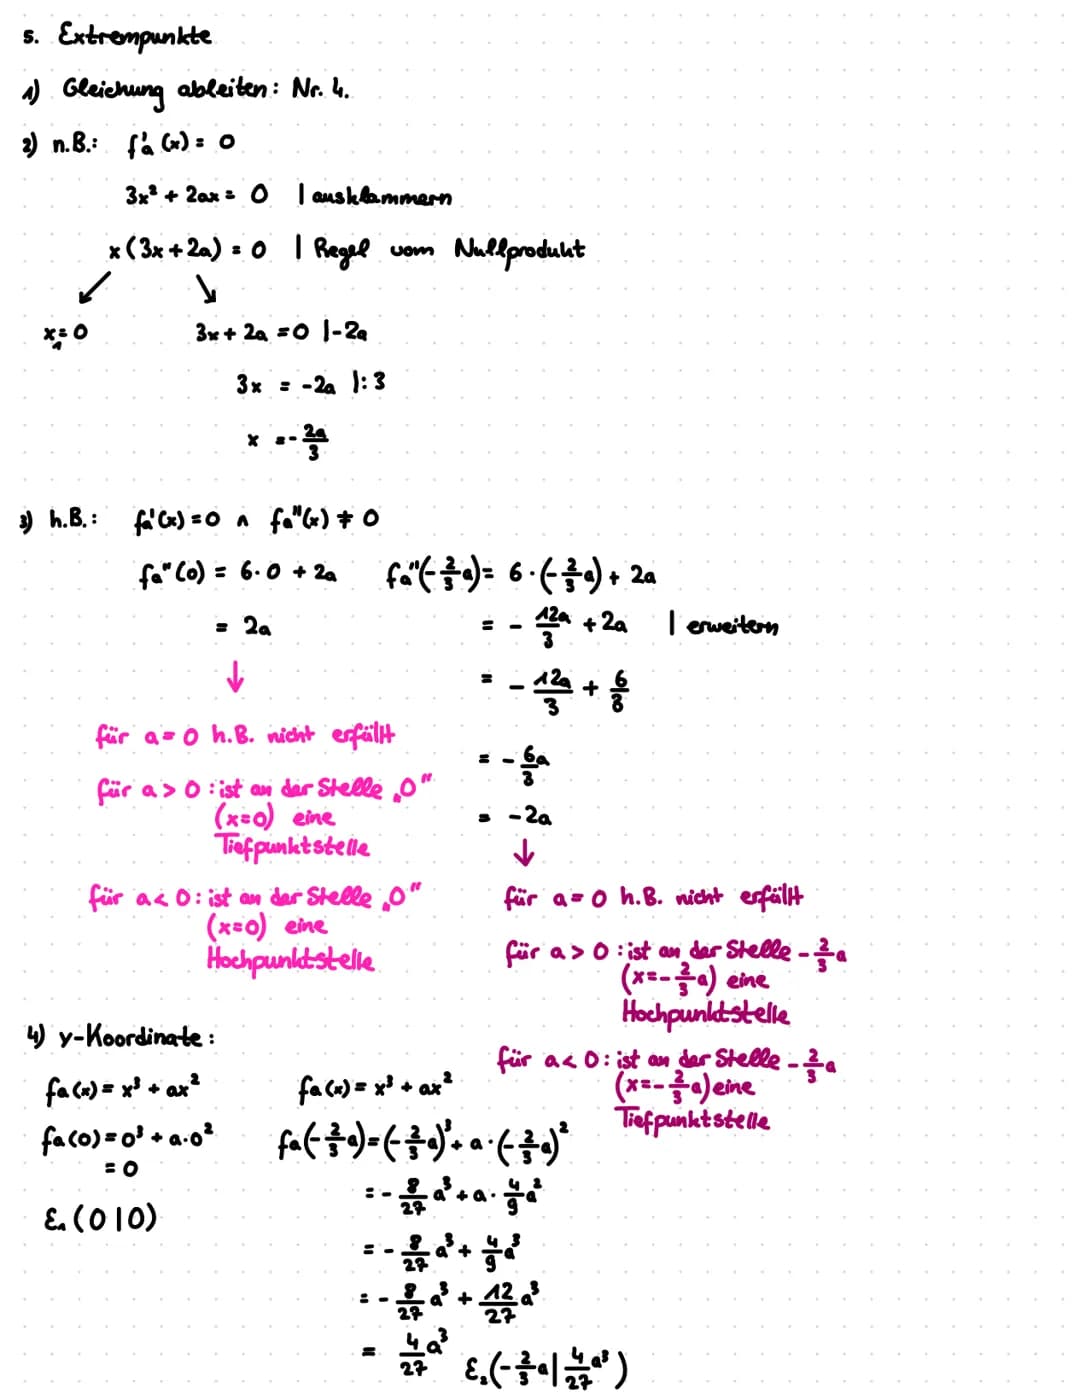 5. Extrempunkte
1) Gleichung ableiten: Nr. 4.
2) n.B.: fa'(x) = 0
3x² + 2ax = 0 | ausklammern
x(3x + 2a) = 0 | Regel vom Nullprodukt
↙ ↘
x₁ = 0 3x + 2a = 0 |-2a
3x = -2a |: 3
x = -2a/3
3) h.B.: fa'(x) = 0 ∧ fa''(x) ≠ 0
fa''(0) = 6·0 + 2a
= 2a
↓
für a = 0 h.B. nicht erfüllt
für a > 0 : ist an der Stelle „0"
(x=0) eine
Tiefpunktstelle
für a < 0: ist an der Stelle „0"
(x=0) eine
Hochpunktstelle
fa''(-2/3a) = 6·(-2/3a) + 2a
= - 12a/3 + 2a | erweitern
= - 12a/3 + 6/3
= - 6a/3
= -2a
↓
für a = 0 h.B. nicht erfüllt
für a > 0 : ist an der Stelle -2/3a
(x=-2/3a) eine
Hochpunktstelle
für a < 0: ist an der Stelle -2/3a
(x=-2/3a) eine
Tiefpunktstelle
4) y-Koordinate:
fa(x) = x³ + ax²
fa(0) = 0³ + a·0²
= 0
E₁(0|0)
fa(x) = x³ + ax²
fa(-2/3a) = (-2/3a)³ + a·(-2/3a)²
= - 8/27 a³ + a· 4/9 a²
= - 8/27 a³ + 4/9 a³
= - 8/27 a³ + 12/27 a³
= 4/27 a³
E₂(-2/3a | 4/27 a³)